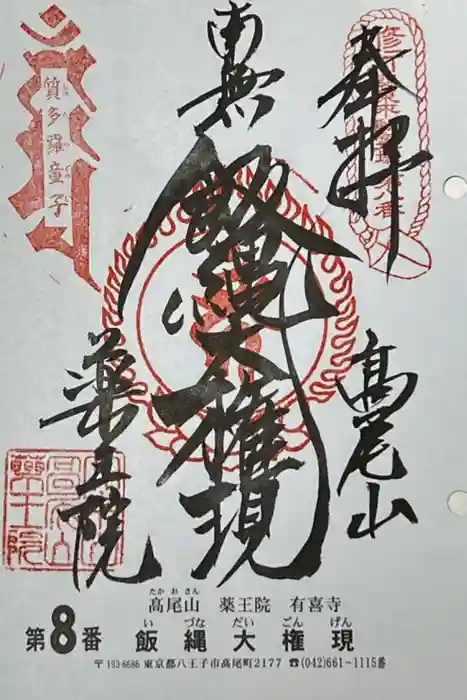 奉拝
高尾山
南無
飯縄大権現
薬王院
質多羅童子
高尾山
薬王院
たかおさん
髙尾山 薬王院 有喜寺
い づな だい ごん げん
第8番 飯縄大権現
〒193-8686 東京都八王子市高尾町2177 ☎(042)661-1115番